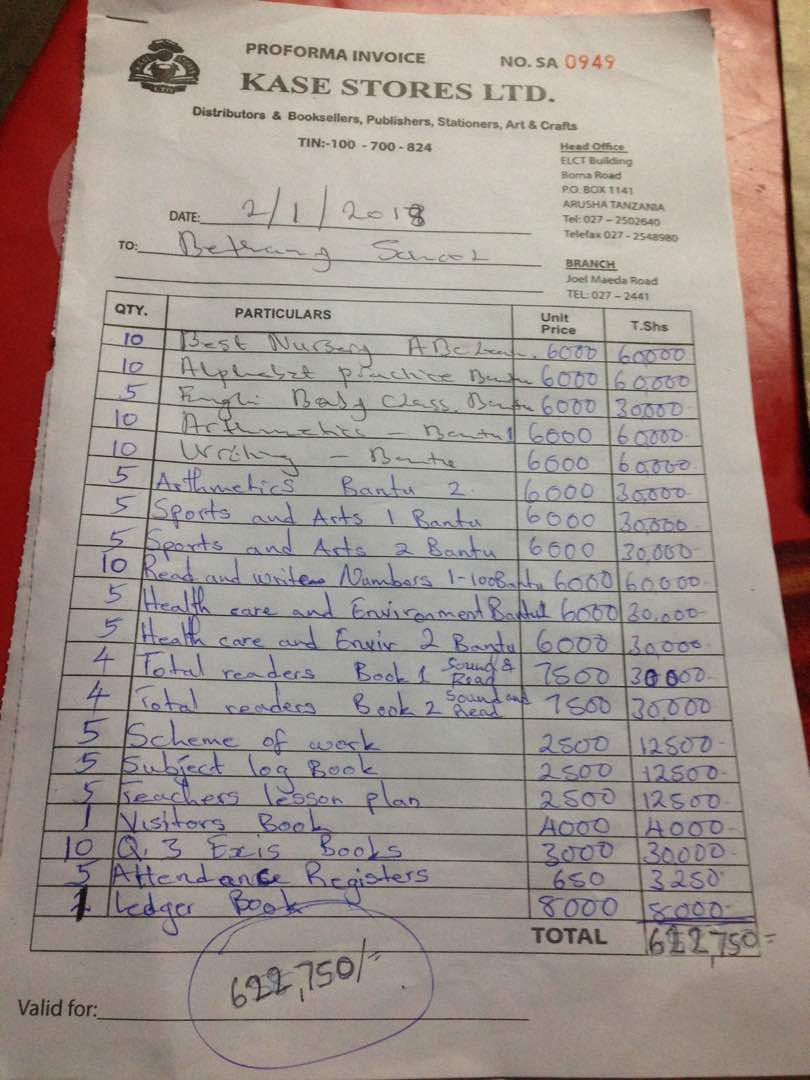 PROFORMA INVOICE NO. SA 0949
KASE STORES LTD.
Distributors & Booksellers, Publishers, Stationers, Art & Crafts
TIN:-100 - 700 - 824
Head Office
ELCT Building
Boma Road
P.O. BOX 1141
ARUSHA TANZANIA
Tel: 027 - 2502640
Telefax 027 - 2548980
BRANCH
Joel Maeda Road
TEL: 027 - 2441
DATE: 2/1/2018
TO: School
QTY. PARTICULARS Unit Price T.Shs
10 Best Nursery 6000 60,000
10 Alphabet practice Bantu 6000 60,000
5 Baby Class Bantu 6000 30000
10 Arthmetics - Bantu 1 6000 60,000
10 Writing - Bantu 6000 60,000
5 Arthmetics Bantu 2. 6000 30,000
5 Sports and Arts 1 Bantu 6000 30,000
5 Sports and Arts 2 Bantu 6000 30,000
10 Read and write Numbers 1-100 Bantu 6000 60000
5 Health care and Environment Bantu 1 6000 30,000
5 Health care and Envir 2 Bantu 6000 30,000
4 Total readers Book 1 Sound & Read 7500 30000-
4 Total readers Book 2 Sound and Read 7500 30,000
5 Scheme of work 2500 12500-
5 Subject log Book 2500 12500-
5 Teachers lesson plan 2500 12500-
1 Visitors Book 4000 4000-
10 Q.3 Exis Books 3000 30000-
5 Attendance Registers 650 3250-
1 Ledger Book 8000 8000-
TOTAL 622,750/=
622,750/=
Valid for: